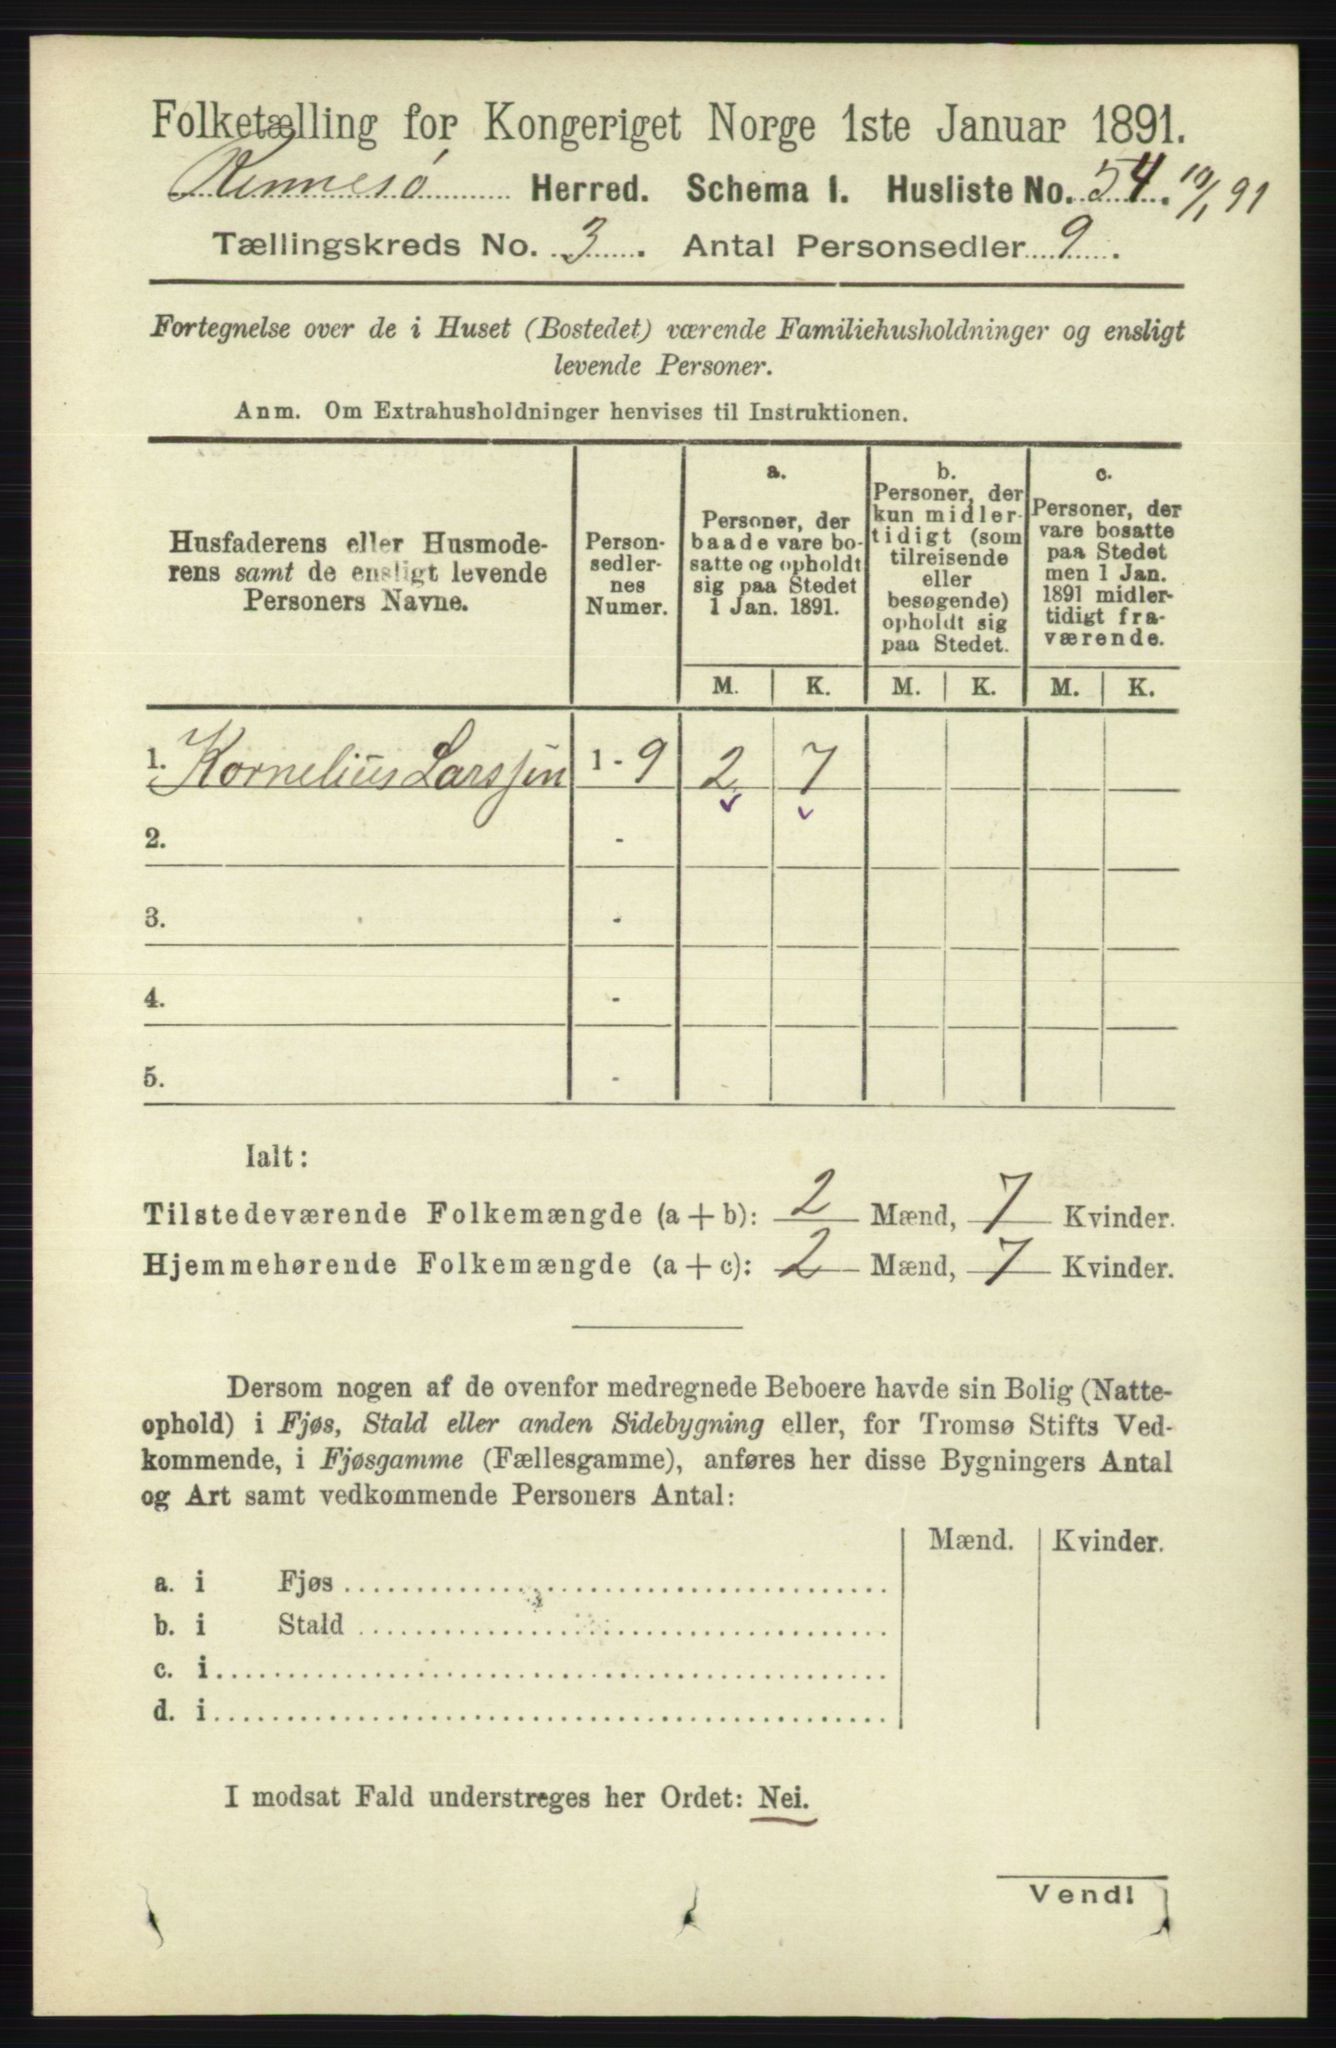 Folketælling for Kongeriget Norge 1ste Januar 1891.
Rennesø Herred. Schema 1. Husliste No. 54. 10/1 91
Tællingskreds No. 3. Antal Personsedler 9.
Fortegnelse over de i Huset (Bostedet) værende Familiehusholdninger og ensligt
levende Personer.
Anm. Om Extrahusholdninger henvises til Instruktionen.
Husfaderens eller Husmode-
rens samt de ensligt levende
Personers Navne.
Person-
sedler-
nes
Numer.
a.
Personer, der
baade vare bo-
satte og opholdt
sig paa Stedet
1 Jan. 1891.
b.
Personer, der
kun midler-
tidigt (som
tilreisende
eller
besøgende)
opholdt sig
paa Stedet.
c.
Personer, der
vare bosatte
paa Stedet
men 1 Jan.
1891 midler-
tidigt fra-
værende.
M. K. M. K. M. K.
1. Kornelius Larssen 1 - 9 2 7
2. -
3. -
4. -
5. -
Ialt:
Tilstedeværende Folkemængde (a + b): 2 Mænd, 7 Kvinder.
Hjemmehørende Folkemængde (a + c): 2 Mænd, 7 Kvinder.
Dersom nogen af de ovenfor medregnede Beboere havde sin Bolig (Natte-
ophold) i Fjøs, Stald eller anden Sidebygning eller, for Tromsø Stifts Ved-
kommende, i Fjøsgamme (Fællesgamme), anføres her disse Bygningers Antal
og Art samt vedkommende Personers Antal:
Mænd. Kvinder.
a. i Fjøs
b. i Stald
c. i
d. i
I modsat Fald understreges her Ordet: Nei.
Vend!